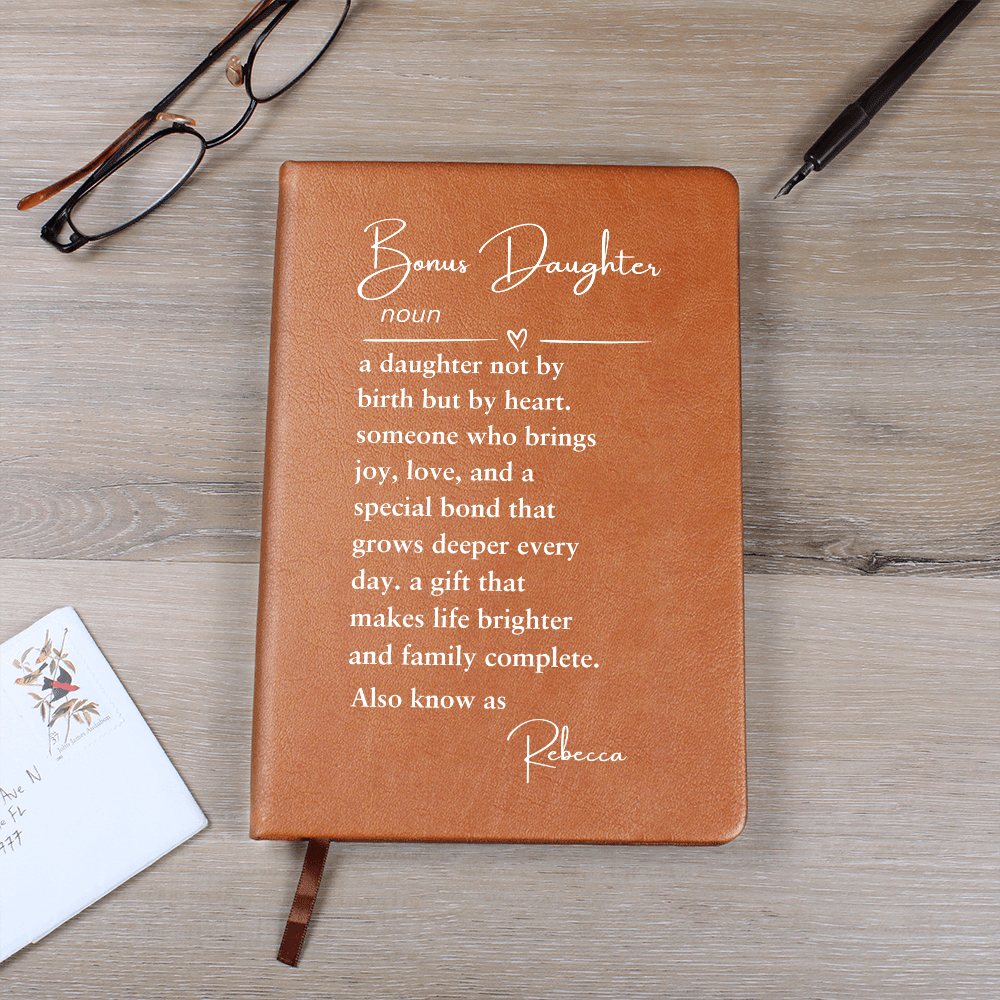 Bonus Daughter
noun
a daughter not by
birth but by heart.
someone who brings
joy, love, and a
special bond that
grows deeper every
day. a gift that
makes life brighter
and family complete.
Also know as
Rebecca
37
John James Audubon
Ave N
FL